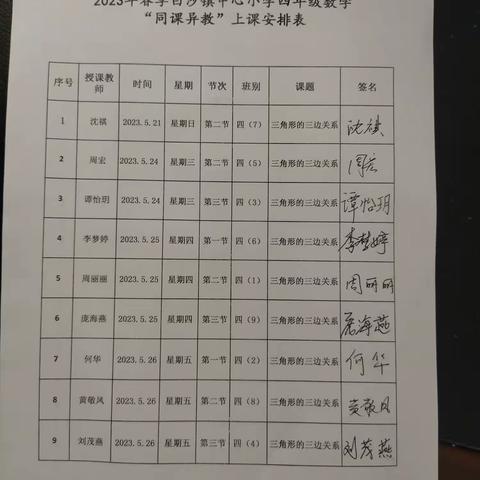 2023年春季白沙镇中心小学四年级数学
“同课异教”上课安排表
序号 授课教师 时间 星期 节次 班别 课题 签名
1 沈祺 2023.5.21 星期日 第二节 四（7） 三角形的三边关系 沈祺
2 周宏 2023.5.24 星期三 第二节 四（5） 三角形的三边关系 周宏
3 谭怡玥 2023.5.24 星期三 第三节 四（3） 三角形的三边关系 谭怡玥
4 李梦婷 2023.5.25 星期四 第一节 四（6） 三角形的三边关系 李梦婷
5 周丽丽 2023.5.25 星期四 第二节 四（1） 三角形的三边关系 周丽丽
6 庞海燕 2023.5.25 星期四 第三节 四（9） 三角形的三边关系 庞海燕
7 何华 2023.5.26 星期五 第一节 四（2） 三角形的三边关系 何华
8 黄敬凤 2023.5.26 星期五 第二节 四（8） 三角形的三边关系 黄敬凤
9 刘茂燕 2023.5.26 星期五 第三节 四（4） 三角形的三边关系 刘茂燕